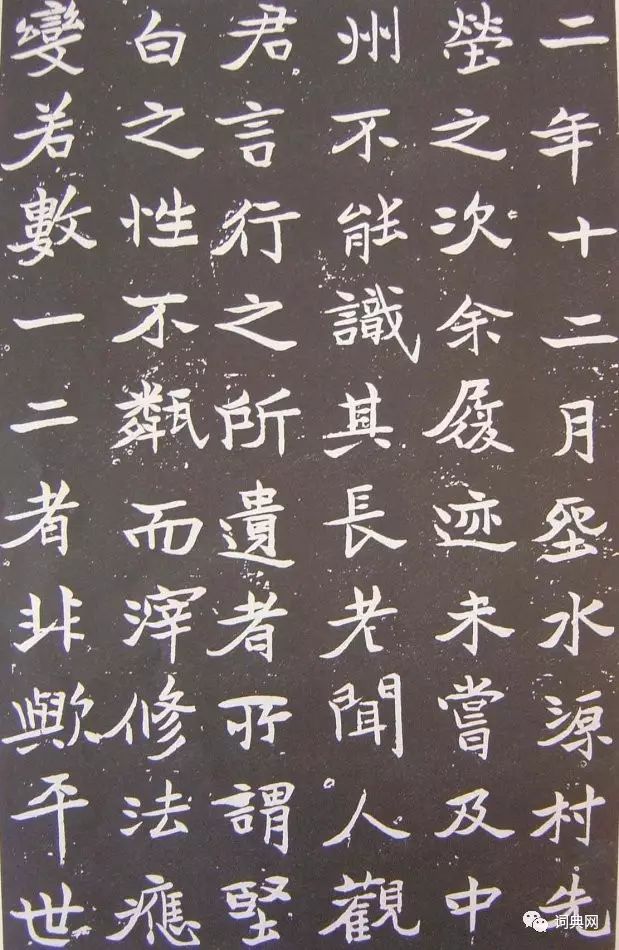 二年十二月水源村先
塋之次余履迹未嘗及中
州不能識其長老聞人觀
君言行之所遺者所謂堅
白之性不甐而滓修法應
變若數一二者非歟平世
词典网